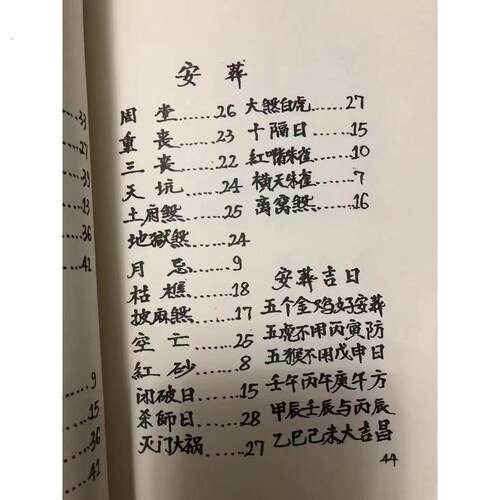 安葬
周堂......26
重丧......23
三丧......22
天坑......24
土府煞......25
地獄煞......24
月忌......9
枯樵......18
披麻煞......17
空亡......25
紅砂......8
闭破日......15
杀師日......28
灭门大祸......27
大煞白虎......27
十隔日......15
紅嘴朱雀......10
横天朱雀......7
离窝煞......16
安葬吉日
五个金鸡好安葬
五虎不用丙寅防
五猴不用戊申日
壬午丙午庚午方
甲辰壬辰与丙辰
乙巳己未大吉昌
44
33
27
33
13
36
41
9
15
36
41